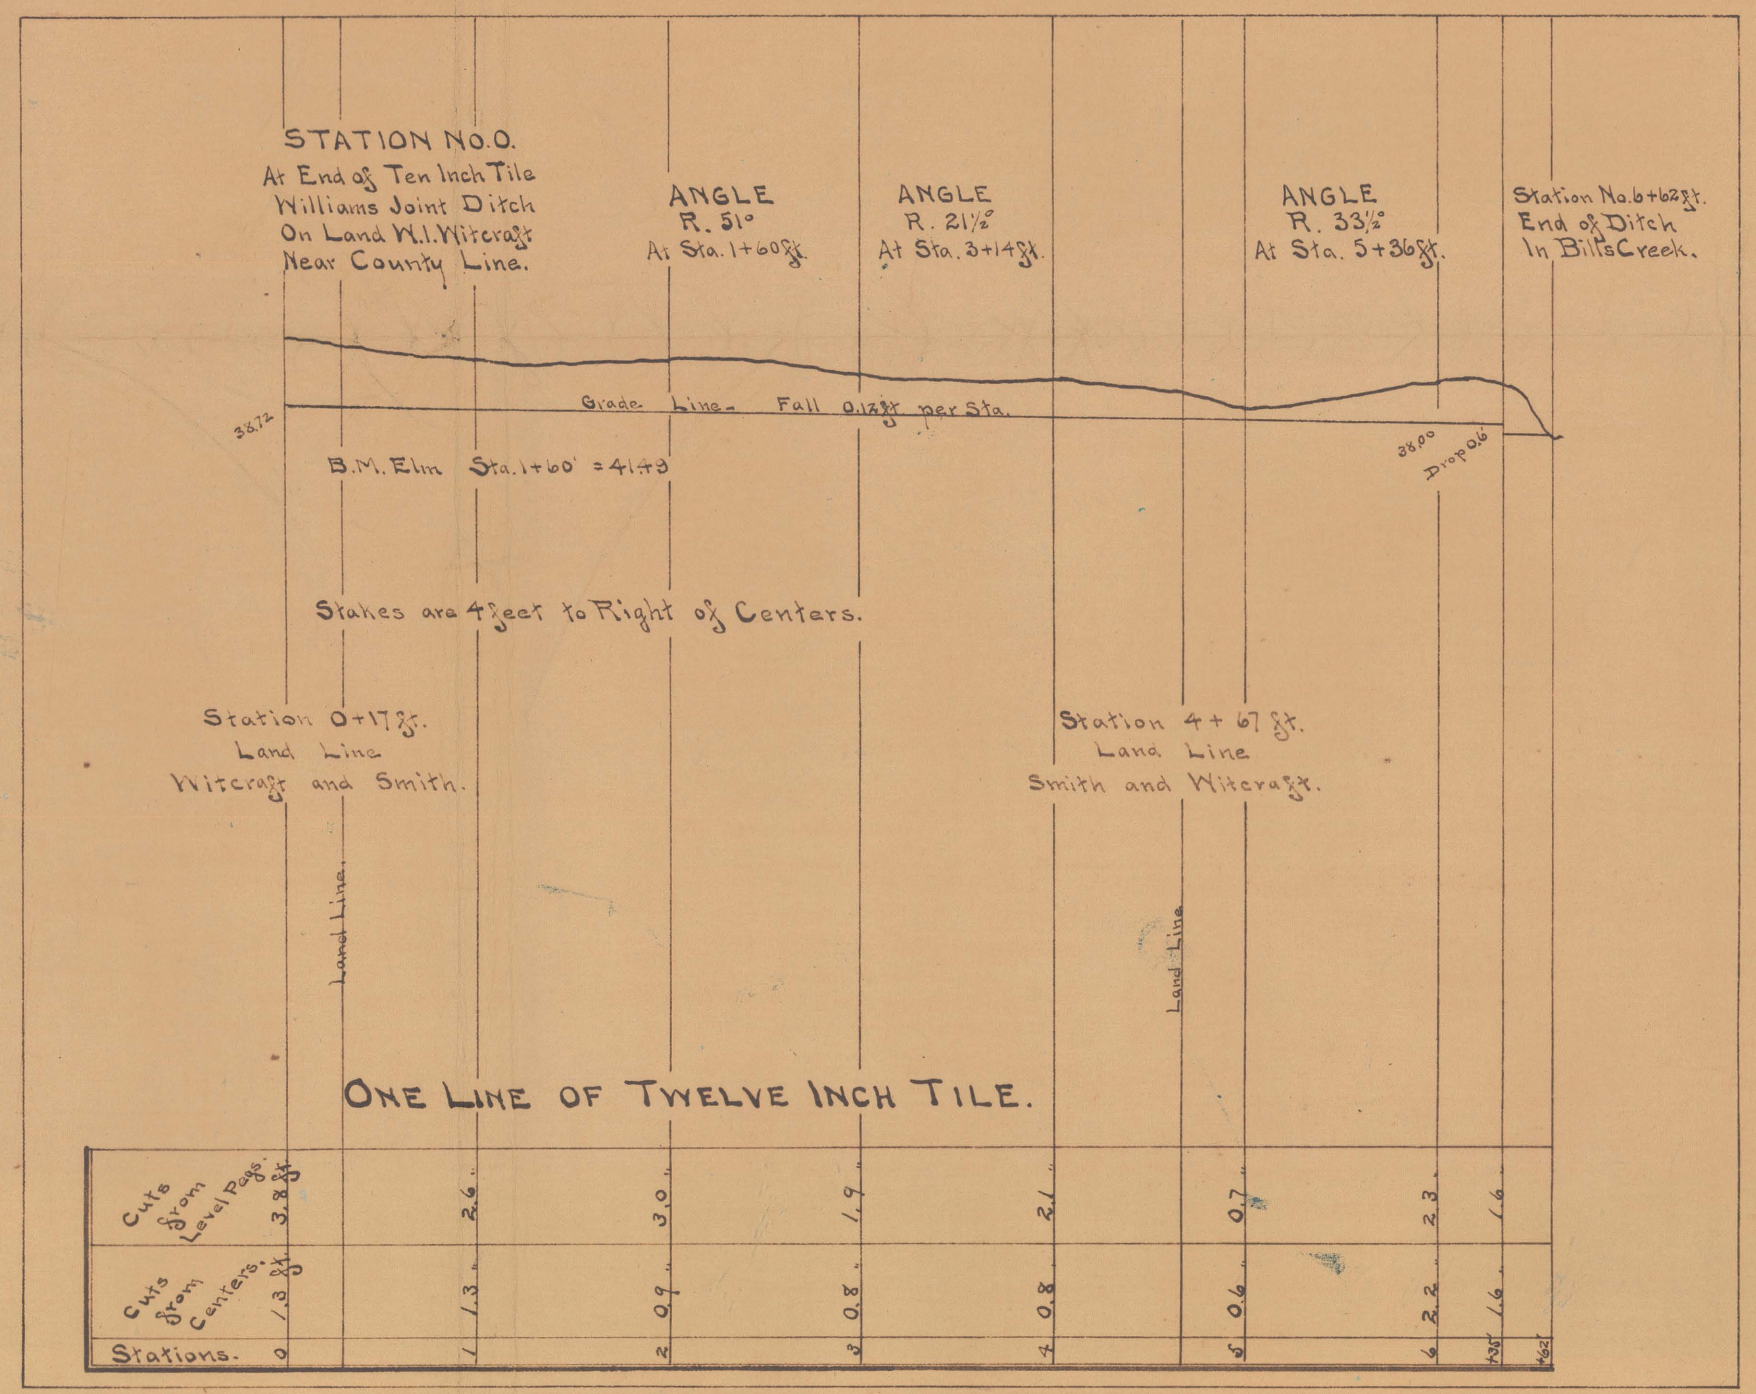 STATION No.0.
At End of Ten Inch Tile
Williams Joint Ditch
On Land W.I. Witcraft
Near County Line.
ANGLE
R. 51°
At Sta. 1+60 ft.
ANGLE
R. 21½°
At Sta. 3+14 ft.
ANGLE
R. 33½°
At Sta. 5+36 ft.
Station No. 6+62 ft.
End of Ditch
In Bills Creek.
38.72
Grade Line - Fall 0.12 ft per Sta.
38.00
Drop 0.6'
B.M. Elm Sta. 1+60' = 41.49
Stakes are 4 feet to Right of Centers.
Station 0+17 ft.
Land Line
Witcraft and Smith.
Station 4+67 ft.
Land Line
Smith and Witcraft.
Land Line.
Land Line
ONE LINE OF TWELVE INCH TILE.
Cuts from Level Pegs. 3.8 ft. 2.6 " 3.0 " 1.9 " 2.1 " 0.7 " 2.3 " 1.6 "
Cuts from Centers. 1.3 ft. 1.3 " 0.9 " 0.8 " 0.8 " 0.6 " 2.2 " 1.6 "
Stations. 0 1 2 3 4 5 6 +35' +62'